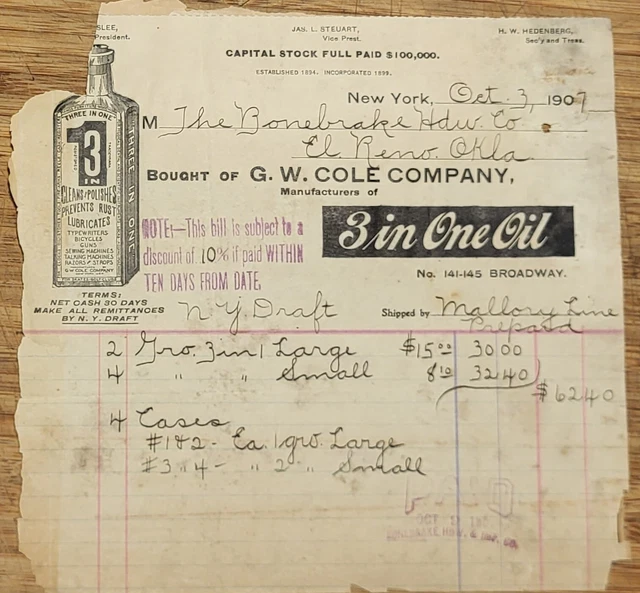 SLEE,
President.
JAS. L. STEUART,
Vice Prest.
H. W. HEDENBERG,
Sec'y and Treas.
CAPITAL STOCK FULL PAID $100,000.
ESTABLISHED 1894. INCORPORATED 1899.
New York, Oct. 3, 1907
M The Bonebrake Hdw. Co.
El Reno. Okla
BOUGHT OF G. W. COLE COMPANY,
Manufacturers of
3 in One Oil
No. 141-145 BROADWAY.
THREE IN ONE
3
IN
1
CLEANS & POLISHES
PREVENTS RUST
LUBRICATES
TYPEWRITERS
BICYCLES
GUNS
SEWING MACHINES
TALKING MACHINES
RAZORS & STROPS
G. W. COLE COMPANY
THREE IN ONE
NOTE:—This bill is subject to a
discount of 10% if paid WITHIN
TEN DAYS FROM DATE.
TERMS:
NET CASH 30 DAYS
MAKE ALL REMITTANCES
BY N. Y. DRAFT
N Y Draft
Shipped by Mallory Line
Prepaid
2 Gro. 3 in 1 Large $15 00 30 00
4 " " Small 8 10 32 40
$62 40
4 Cases
#1 & 2 - Ea. 1 gro. Large
#3 & 4 - " 2 " Small
PAID
OCT
BONEBRAKE HDW. & IMP. CO.